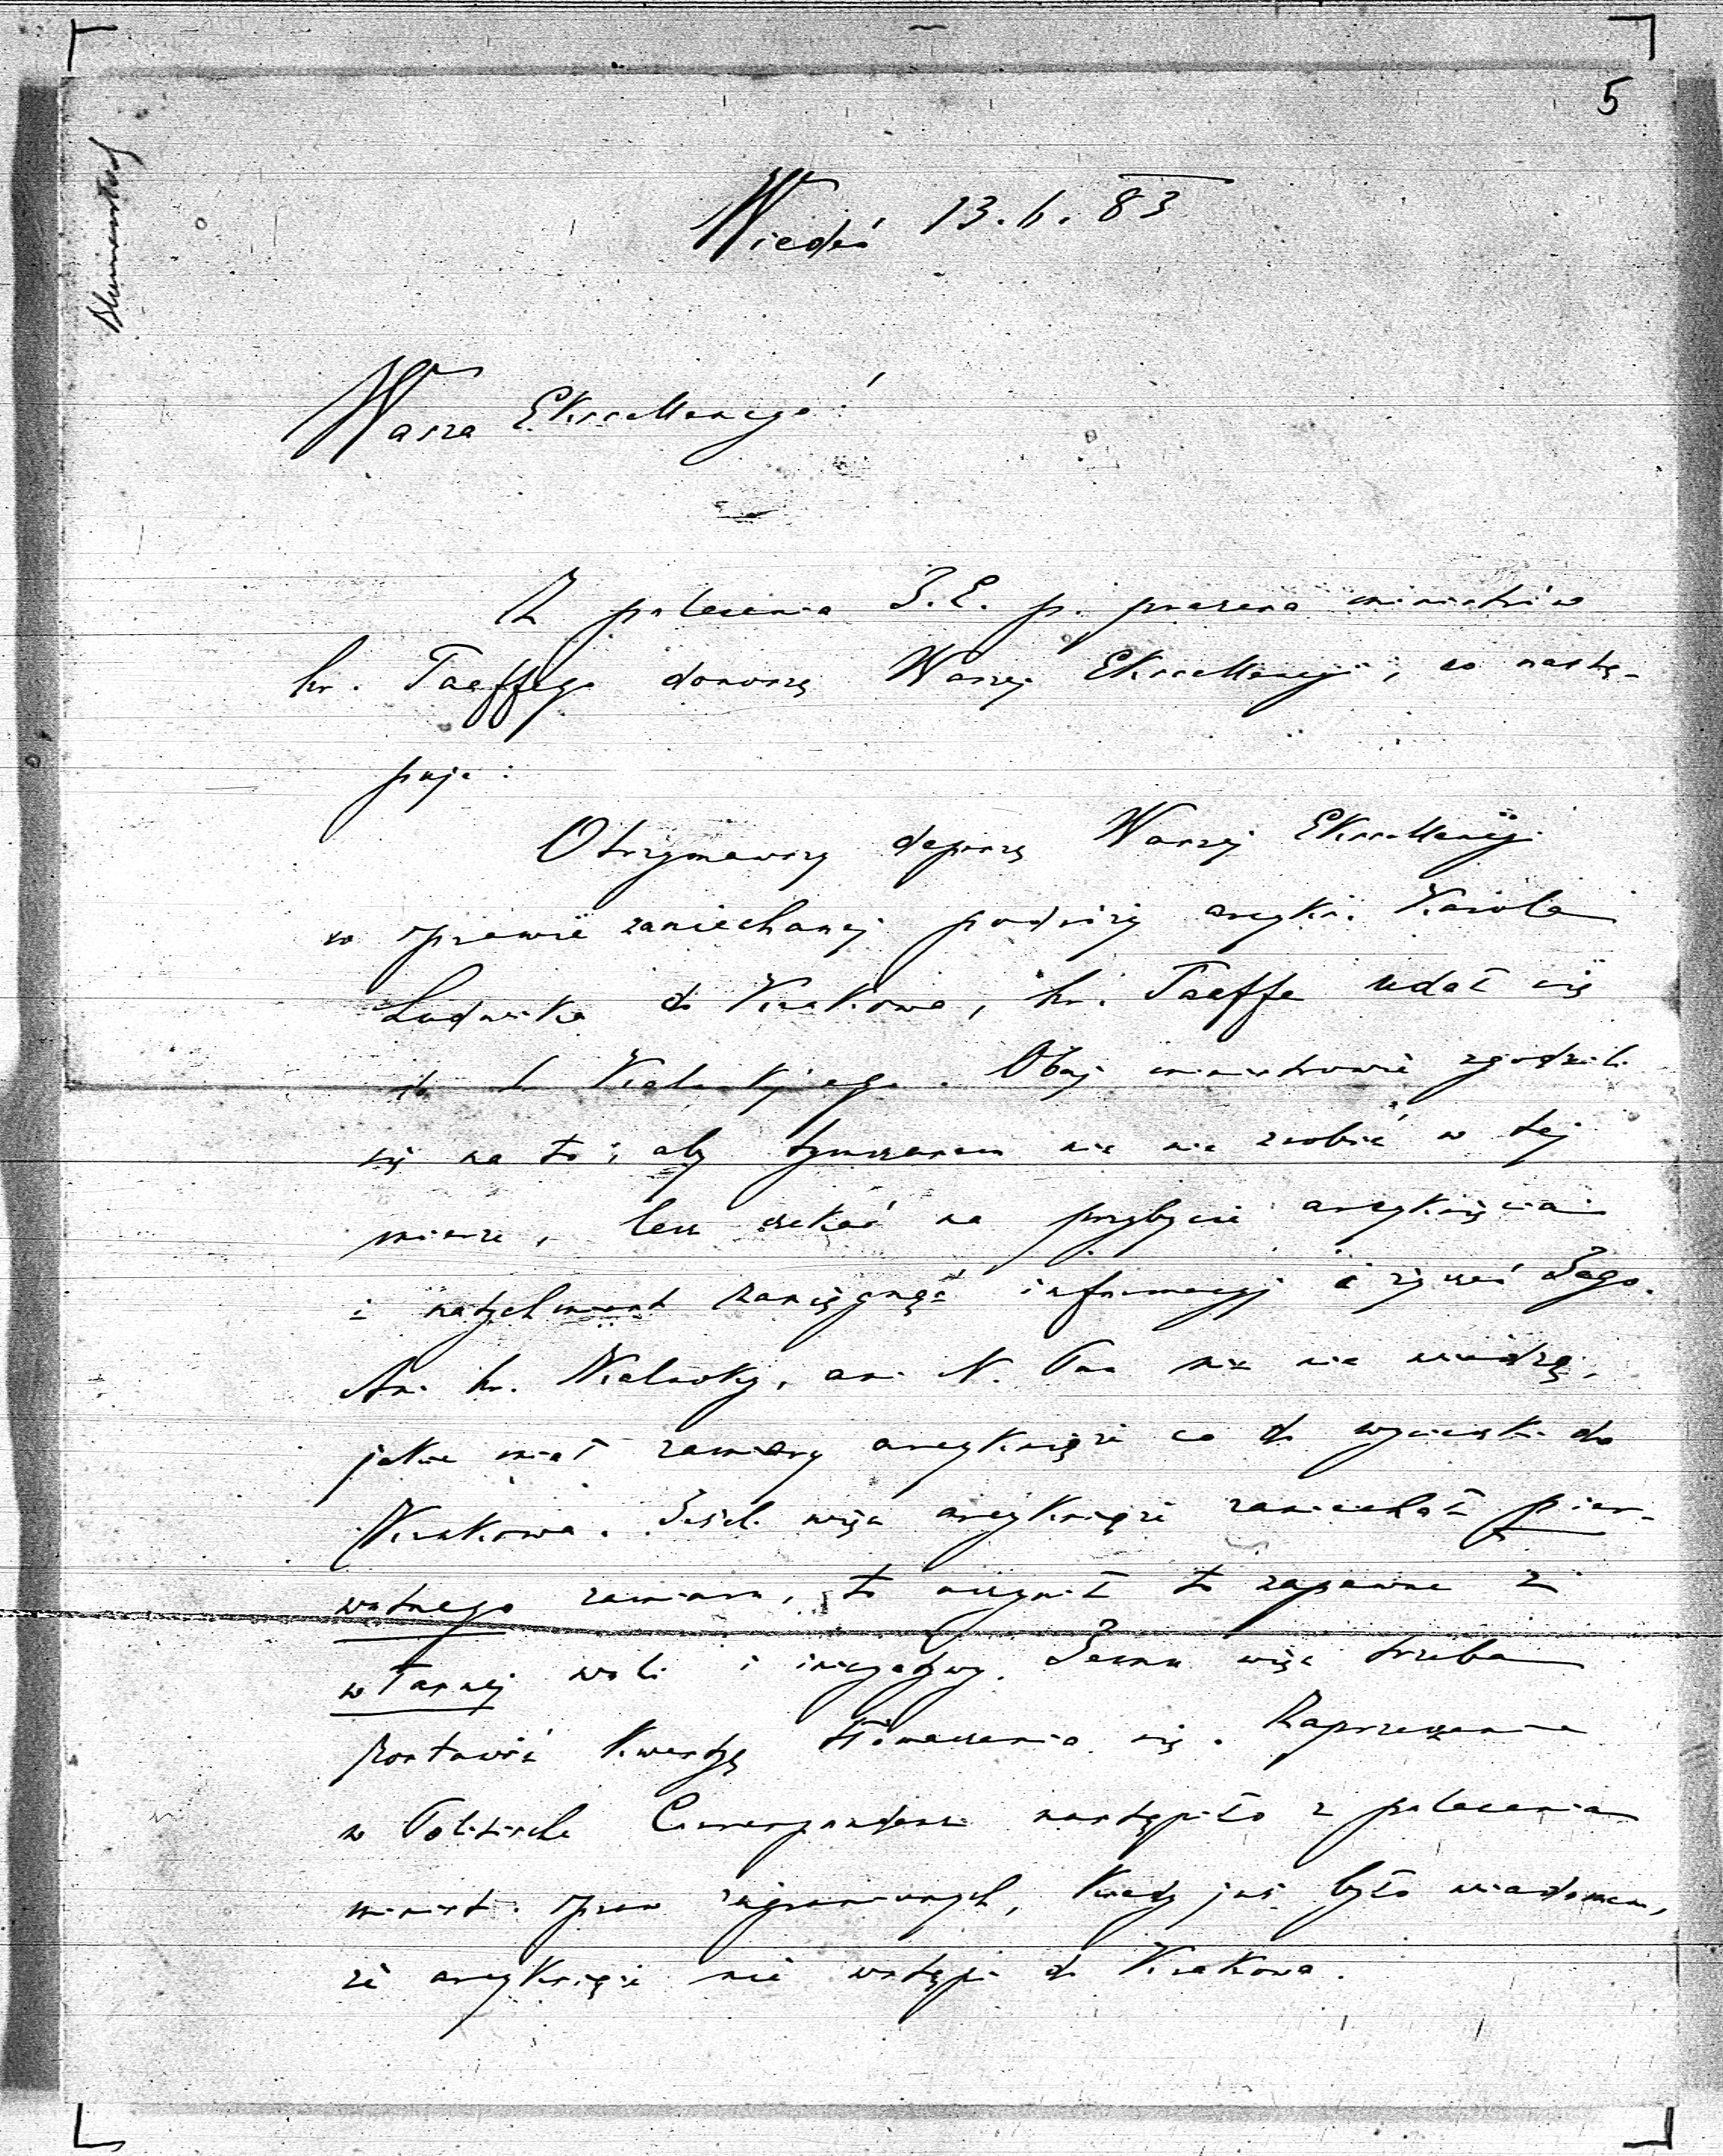 5
Blumenstock
Wiedeń 13.6.83
Wasza Ekscellencyo!
Z polecenia J.E. p. prezesa ministrów
hr. Taaffego donoszę Waszej Ekscellencyi, co nastę-
puje:
Otrzymawszy depeszę Waszej Ekscellencyi
w sprawie zaniechanej podróży arcyks. Karola
Ludwika do Krakowa, hr. Taaffe udał się
do h. Kalnokyjego. Obaj ministrowie zgodzili
się na to, aby tymczasem nic nie zrobić w tej
mierze, lecz czekać na przybycie arcyksięcia
i natychmiast zasięgnąć informacyj i życzeń Jego.
Ani hr. Kalnoky, ani N. Pan nic nie wiedzą,
jakie miał zamiary arcyksiąże co do wycieczki do
Krakowa. Jeśli więc arcyksiąże zaniechał pier-
wotnego zamiaru, to uczynił to zapewne z
własnej woli i inicyatywy. Jemu więc trzeba
zostawić kwestyę tłómaczenia się. Zaprzeczenie
w Politische Correspondenz nastąpiło z polecenia
minist. spraw zagranicznych, kiedy już było wiadomem,
że arcyksiąże nie wstąpi do Krakowa.